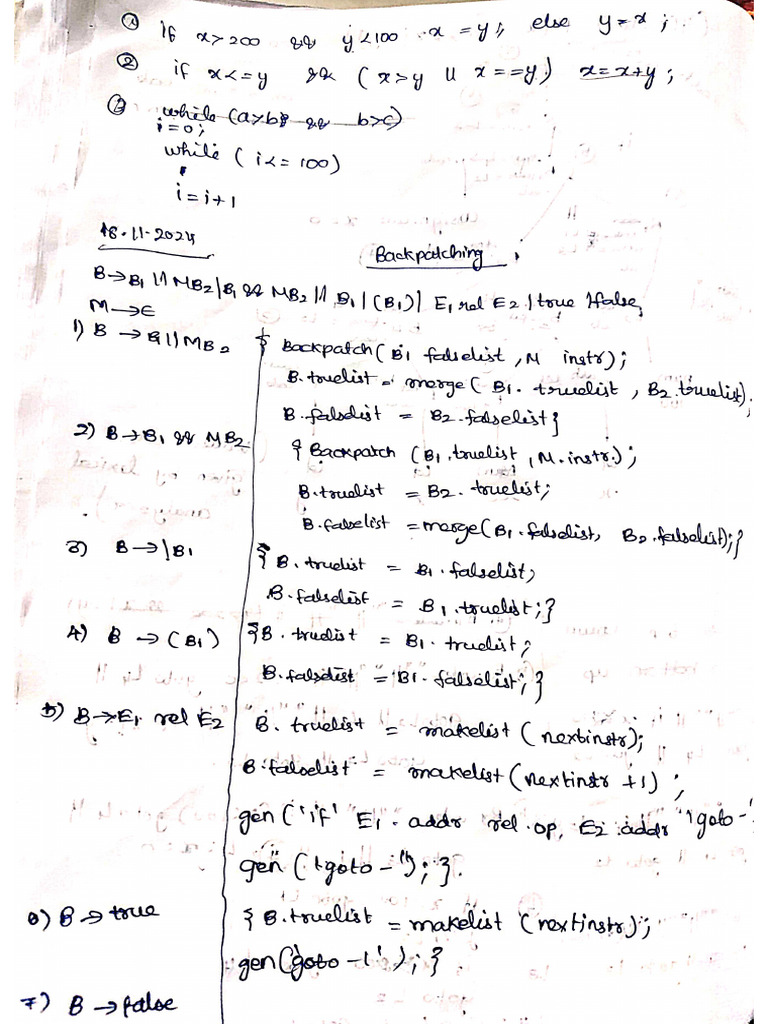 ① if x>200 && y<100 x=y; else y=x;
② if x<=y && (x>y || x==y) x=x+y;
③ while (a>b && b>c)
i=0;
while (i<=100)
i=i+1
18-11-2024
Backpatching
B→B1 || MB2 | B1 && MB2 | ! B1 | (B1) | E1 rel E2 | true | false
M→ε
1) B → B1 || MB2 { Backpatch(B1 falselist, M instr);
B.truelist = merge(B1.truelist, B2.truelist);
B.falselist = B2.falselist}
2) B→B1 && MB2 { Backpatch (B1.truelist, M.instr.);
B.truelist = B2.truelist;
B.falselist = merge(B1.falselist, B2.falselist);}
3) B→!B1 { B.truelist = B1.falselist,
B.falselist = B1.truelist;}
4) B → (B1) {B.truelist = B1.truelist;
B.falselist = B1.falselist;}
5) B→E1 rel E2 B.truelist = makelist (nextinstr);
B.falselist = makelist(nextinstr +1);
gen('if' E1.addr rel.op, E2 addr 'goto -'
gen ('goto -');}.
6) B→true { B.truelist = makelist (nextinstr);
gen(goto -');}
7) B →false